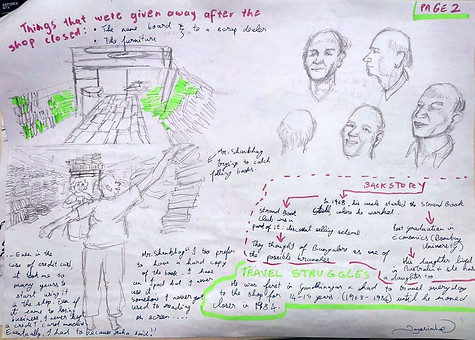 PAGE 2
Things that were given away after the
shop closed:
• The name board
• The furniture
to a scrap dealer
Mr. Shanbhag
trying to catch
falling books.
BACKSTORY
In 1968, his uncle started the Strand Book
Stall, where he worked.
Strand Book
Club was a
part of it: discount selling scheme
Post graduation in
economics (Bombay
University)
They thought of Bangalore as one of
the possible branches
His daughter lived
in Australia & she has
a daughter too
TRAVEL STRUGGLES
He was first in Gandhinagar & had to travel everyday
to the shop for 14-15 years (1963 - 1984) until he moved
closer in 1984.
... Even in the
case of credit card,
it took me
many years to
start using it
in the shop. Even if
it came to losing
business, I never kept
a credit card machine.
Eventually, I had to because
Mr. Shanbhag: I too prefer
to have a hard copy
of the book. I have
an iPad but I never
use it.
Somehow I never got
used to reading
on screen ....